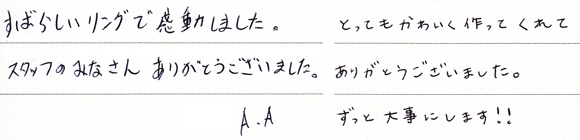 すばらしいリングで感動しました。
スタッフのみなさん ありがとうございました。
A.A
とってもかわいく作ってくれて
ありがとうございました。
ずっと大事にします!!